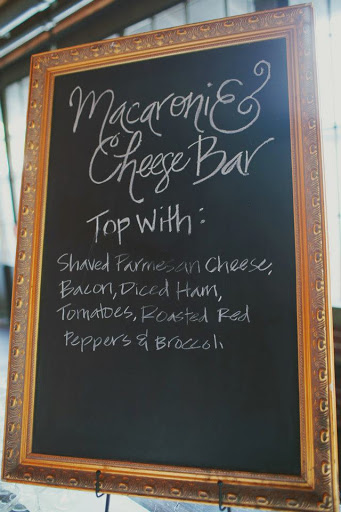 Macaroni &
Cheese Bar
Top With:
Shaved Parmesan Cheese,
Bacon, Diced Ham,
Tomatoes, Roasted Red
Peppers & Broccoli